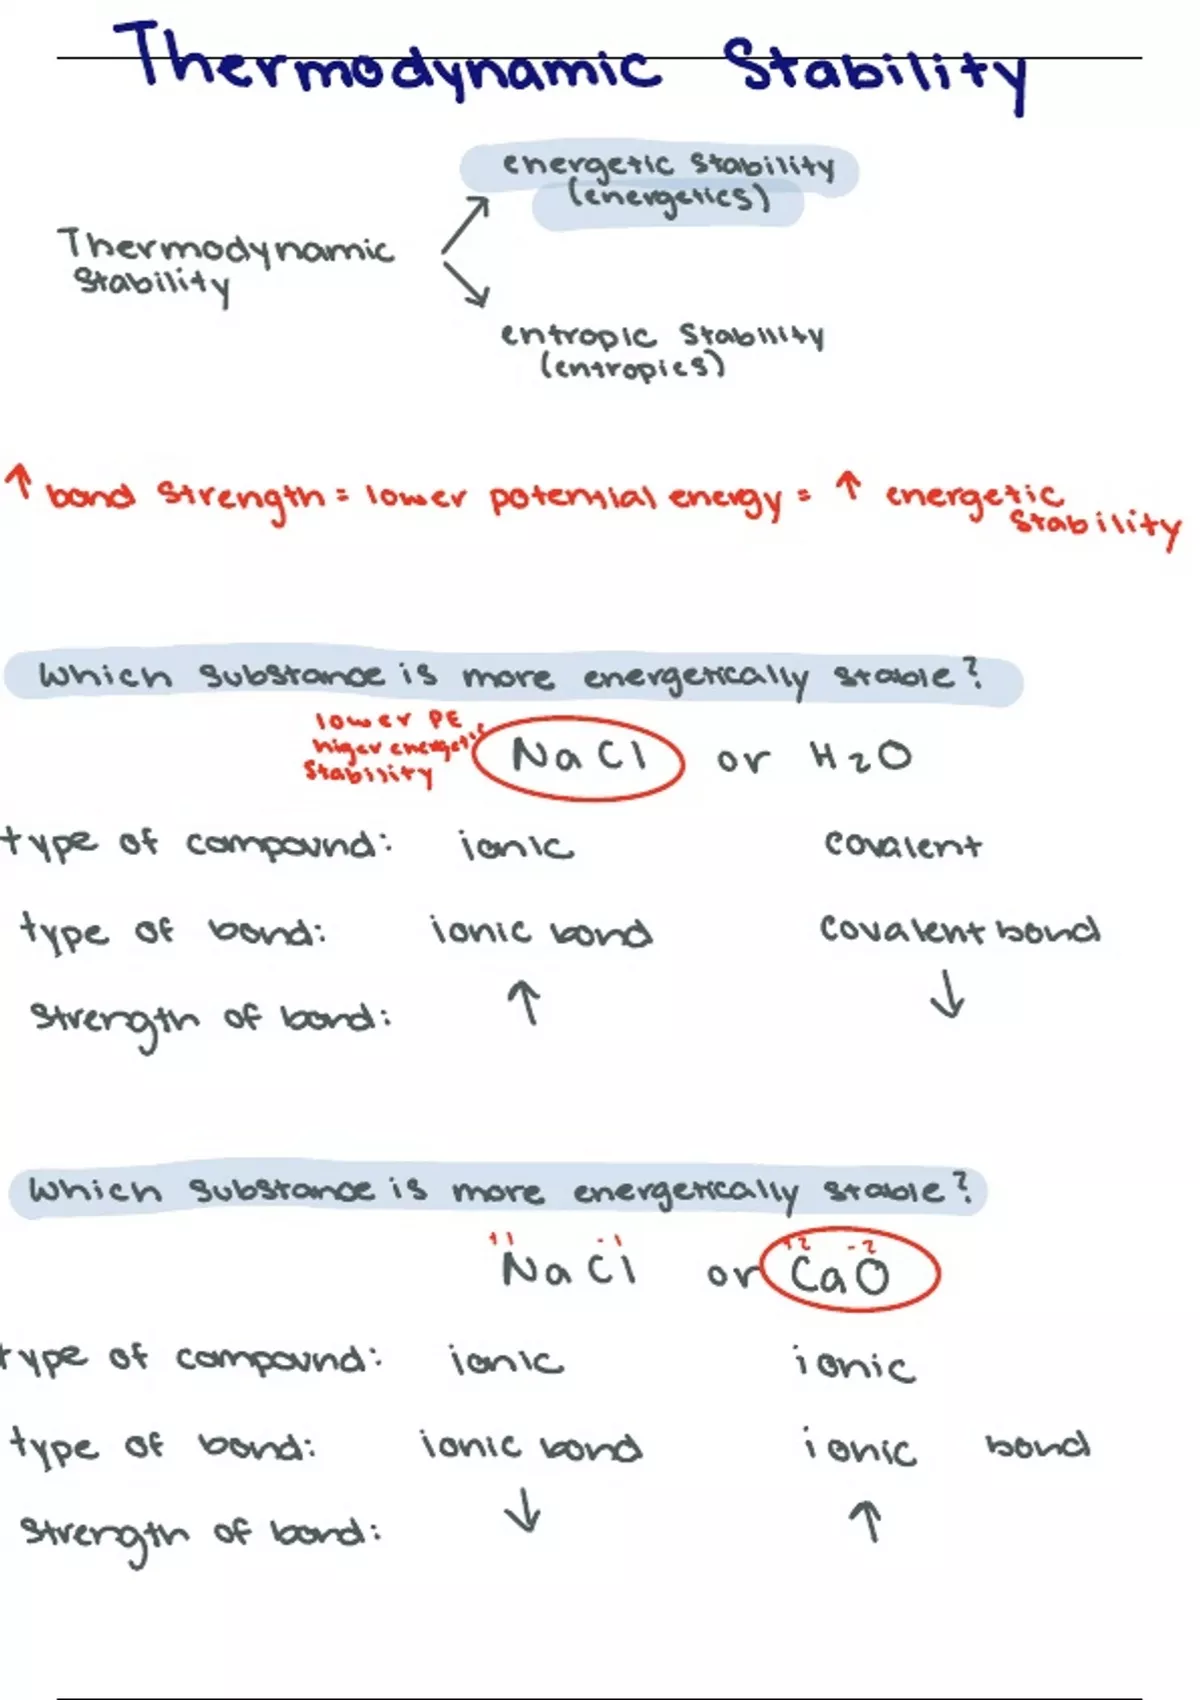 Thermodynamic Stability
energetic stability
(energetics)
Thermodynamic
Stability
entropic Stability
(entropics)
↑ bond Strength = lower potential energy = ↑ energetic
Stability
Which substance is more energetically stable?
lower PE
higer energetic
Stability
NaCl or H2O
type of compound: ionic covalent
type of bond: ionic bond covalent bond
Strength of bond: ↑ ↓
Which substance is more energetically stable?
+1 -1 +2 -2
NaCl or CaO
type of compound: ionic ionic
type of bond: ionic bond ionic bond
Strength of bond: ↓ ↑